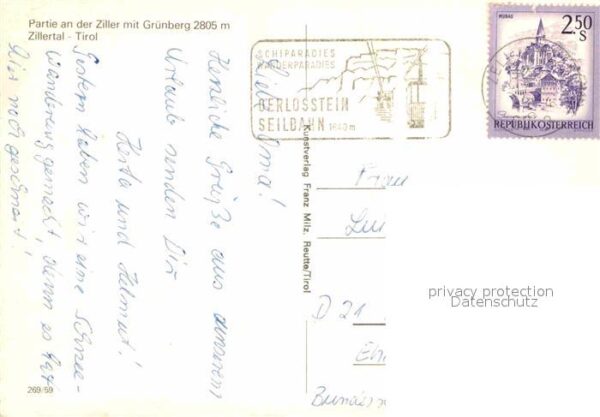 Partie an der Ziller mit Grünberg 2805 m
Zillertal - Tirol
SCHIPARADIES
WANDERPARADIES
GERLOSSTEIN
SEILBAHN 1640m
MURAU
2.50
S
REPUBLIK ÖSTERREICH
Liebe Oma!
Herzliche Grüße aus unserem
Urlaub senden Dir
Herta und Helmut!
Gestern haben wir eine Schnee-
wanderung gemacht, denn es hat
hier noch geschneit!
Kunstverlag Franz Milz, Reutte/Tirol
Frau
D 21
privacy protection
Datenschutz
269/59